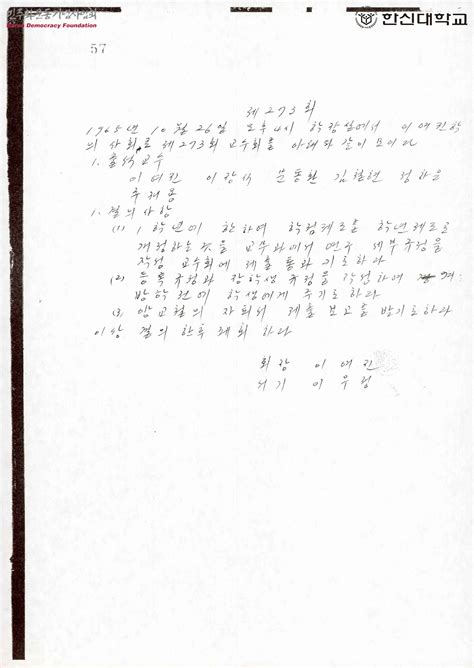 민주화운동기념사업회
Korea Democracy Foundation
한신대학교
57
제273회
1965년 10월 26일 오후4시 학장실에서 이여진학
의 사회로 제273회 교수회를 아래와 같이 모이다
1. 출석교수
이여진 이장식 문동환 김철현 정하은
주재용
1. 결의사항
(1) 1학년에 한하여 학점제도를 학년제도로
개정하는것을 교무과에서 연구 세부규정을
작성 교수회에 제출 통과 키로하다
(2) 등록규정과 장학생규정을 작성하여 겨
방학전에 학생에게 주기로 하다
(3) 의 자퇴서 제출 보고를 받기로하다
이상 결의 한후 폐회 하다
회장 이여진
서기 이우정